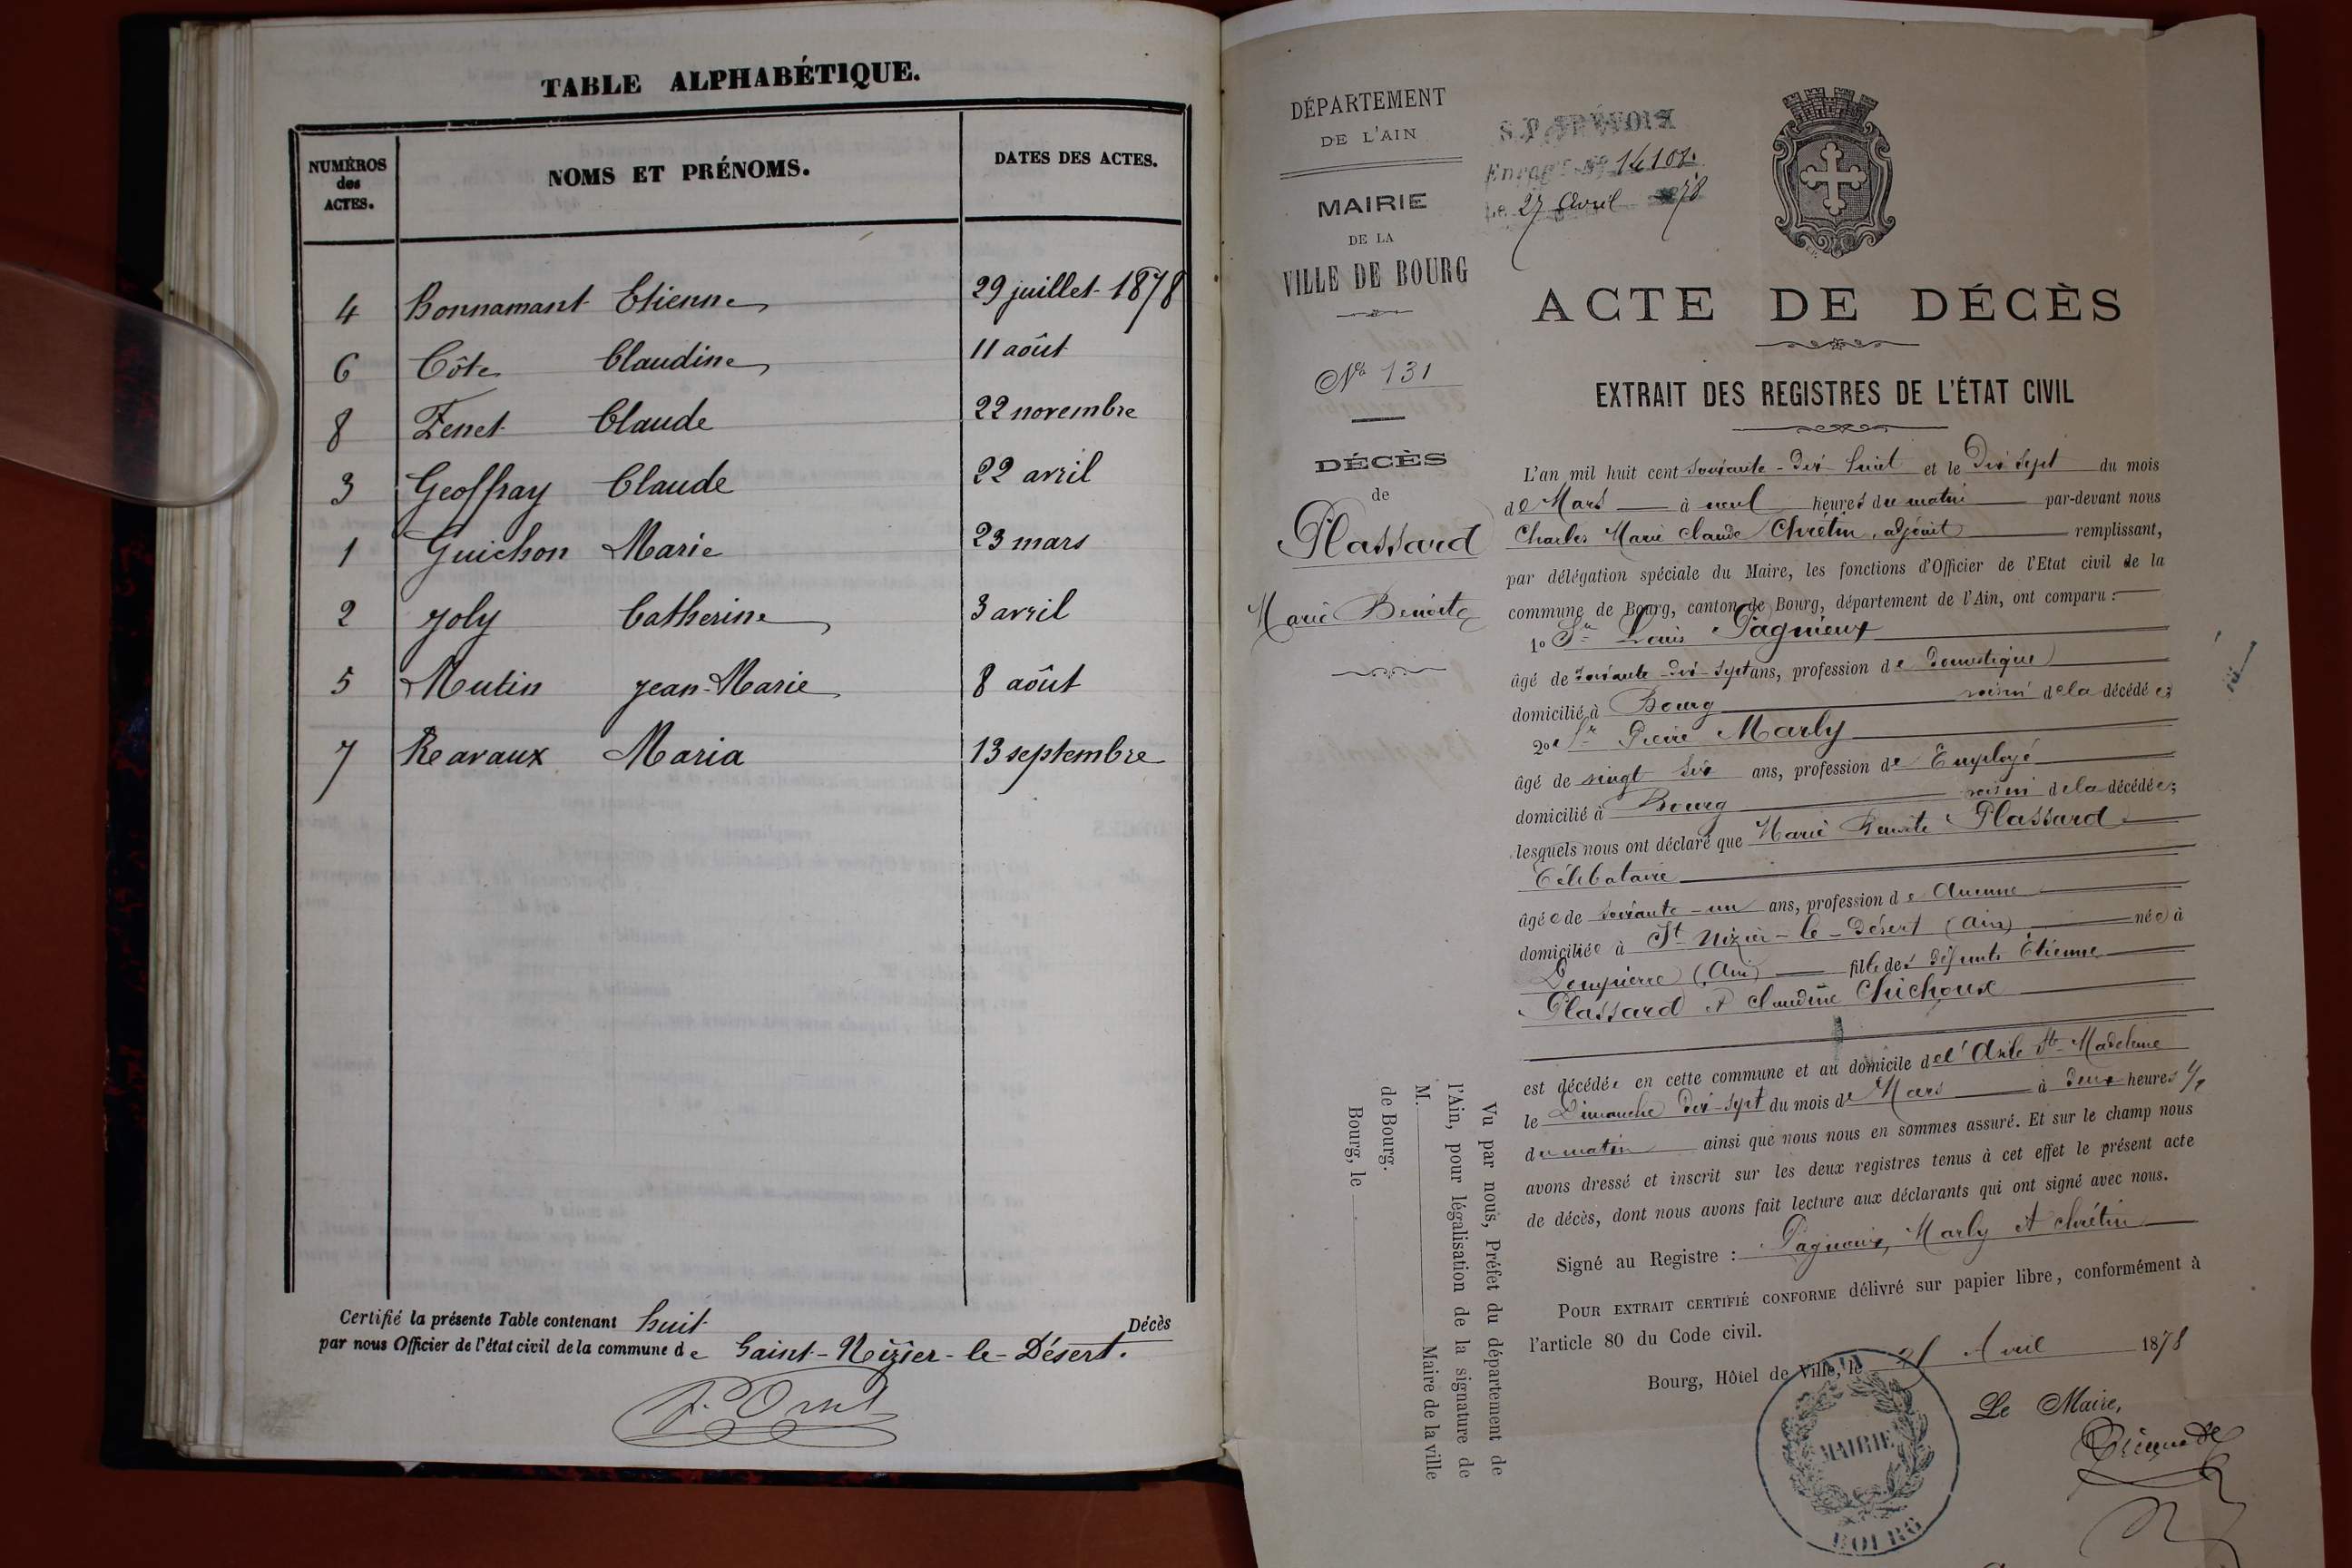 TABLE ALPHABÉTIQUE.
NUMÉROS des ACTES.
NOMS ET PRÉNOMS.
DATES DES ACTES.
4 Bonnamant Etienne 29 juillet 1878
6 Côte Claudine 11 août
8 Fenet Claude 22 novembre
3 Geoffray Claude 22 avril
1 Guichon Marie 23 mars
2 Joly Catherine 3 avril
5 Mutin Jean-Marie 8 août
7 Ravaux Maria 13 septembre
Certifié la présente Table contenant huit Décès
par nous Officier de l'état civil de la commune de Saint-Nizier-le-Désert.
DÉPARTEMENT
DE L'AIN
MAIRIE
DE LA
VILLE DE BOURG
No 131
DÉCÈS
de
Plassard
Marie Benoite
S. P. TRÉVOUX
No 14102.
Le 27 Avril 1878
ACTE DE DÉCÈS
EXTRAIT DES REGISTRES DE L'ÉTAT CIVIL
L'an mil huit cent soixante-dix huit et le Dix sept du mois
de Mars à neuf heures du matin par-devant nous
Charles Marie Claude Chrétin, adjoint remplissant,
par délégation spéciale du Maire, les fonctions d'Officier de l'Etat civil de la
commune de Bourg, canton de Bourg, département de l'Ain, ont comparu :
1o Sr Louis Pagnieux
âgé de soixante-dix-sept ans, profession de Domestique
domicilié à Bourg voisin de la décédée;
2o le Sr Pierre Marly
âgé de vingt six ans, profession de Employé
domicilié à Bourg voisin de la décédée;
lesquels nous ont déclaré que Marie Benoite Plassard
Célibataire
âgée de soixante-un ans, profession de Aucune
domiciliée à St Nizier-le-Désert (Ain) née à
Dompierre (Ain) fille des défunts Étienne
Plassard et Claudine Chichoux
est décédée en cette commune et au domicile de l'Asile Ste-Madeleine
le Dimanche Dix-sept du mois de Mars à deux heures 1/2
du matin ainsi que nous nous en sommes assuré. Et sur le champ nous
avons dressé et inscrit sur les deux registres tenus à cet effet le présent acte
de décès, dont nous avons fait lecture aux déclarants qui ont signé avec nous.
Signé au Registre : Pagnieux, Marly et Chrétin
POUR EXTRAIT CERTIFIÉ CONFORME délivré sur papier libre, conformément à
l'article 80 du Code civil.
Bourg, Hôtel de Ville, le Avril 1878
Le Maire,
MAIRIE
BOURG
AIN
Vu par nous, Préfet du département de
l'Ain, pour légalisation de la signature de
M. Maire de la ville
de Bourg.
Bourg, le